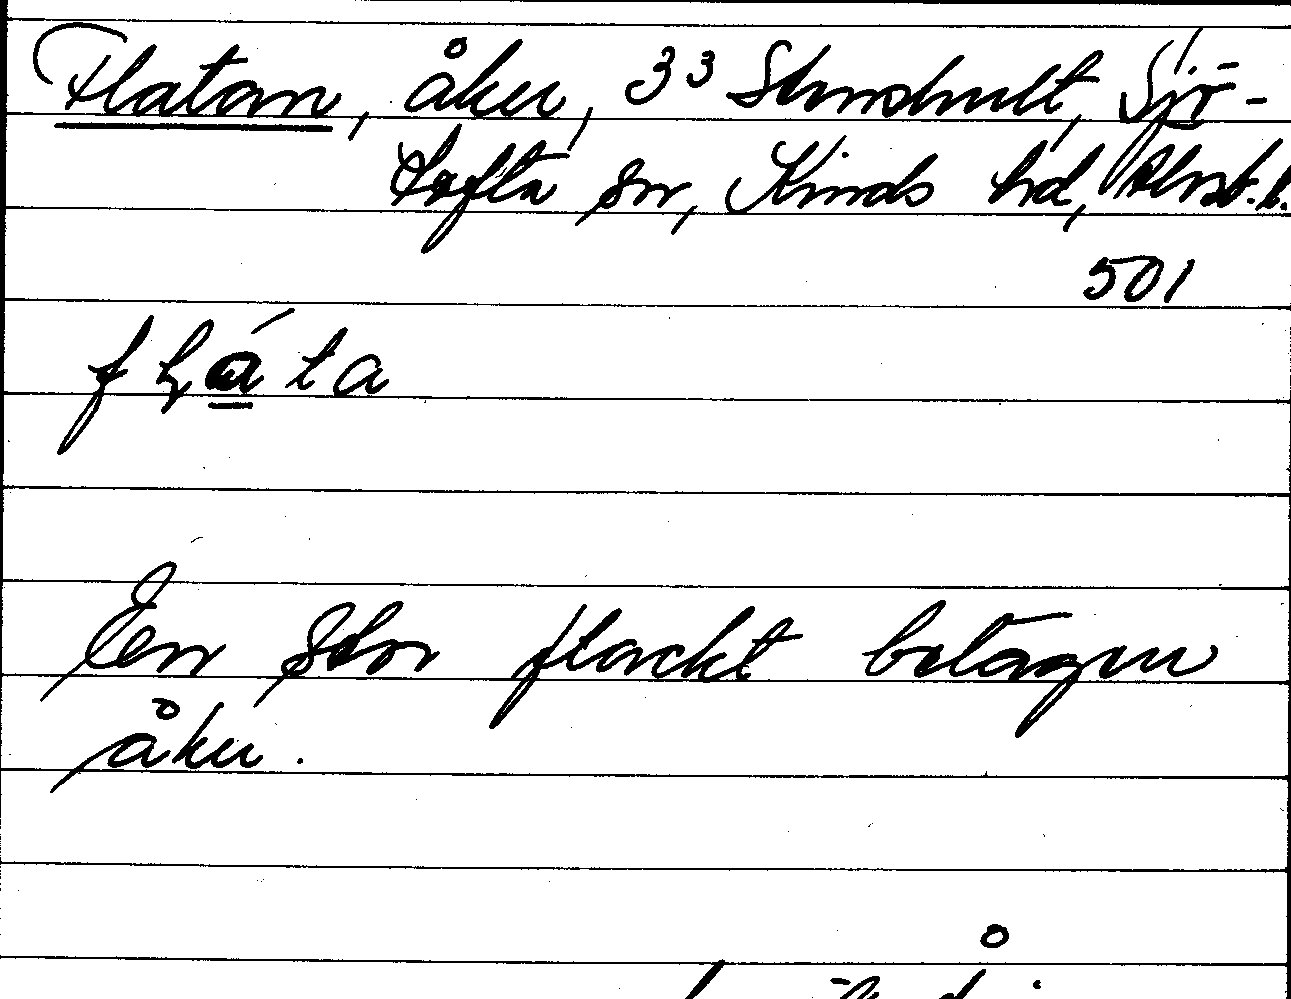 Flatan, åker, 3³ Strmshult, Sjö-
tofta sn, Kinds hd, Älvsb.l.
501
fḷáta
En stor flackt belägen
åker.